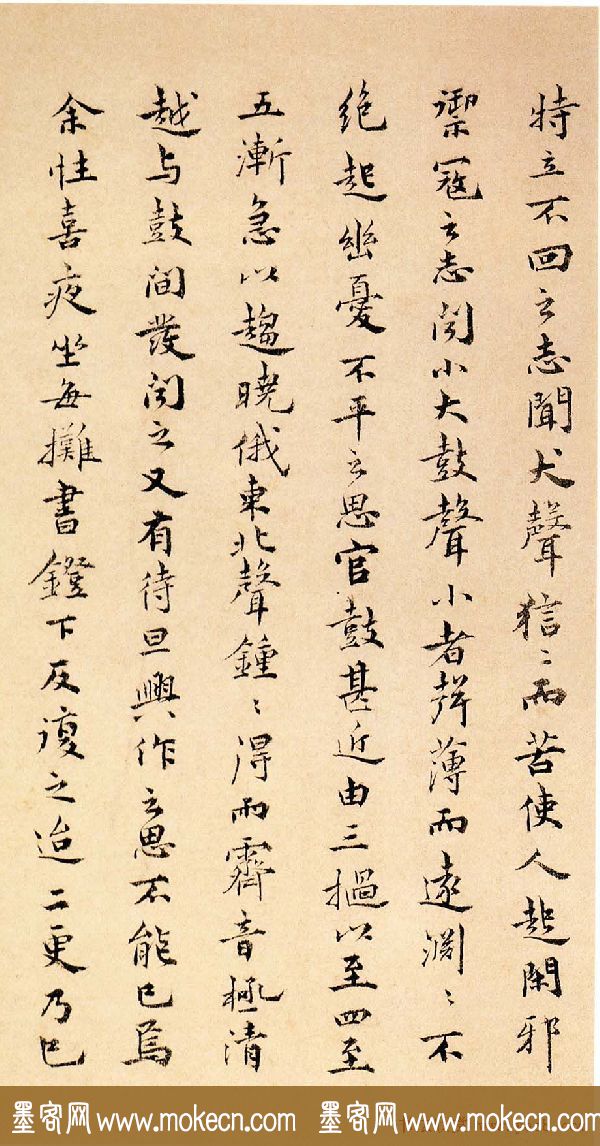 特立不回之志聞犬聲狺〻而苦使人起閑邪
禦寇之志聞小大鼓聲小者聲薄而遠淵〻不
絕起幽憂不平之思官鼓甚近由三撾以至四至
五漸急以趨曉俄東北聲鍾〻得雨霽音極清
越与鼓間發聞之又有待旦興作之思不能已焉
余性喜夜坐每攤書鐙下反復之迨二更乃已
墨客网 www.mokecn.com 墨客网 www.mokecn.com